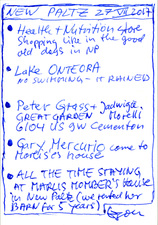 NEW PALTZ 27 VII 2017
• Health + Nutrition store
Shopping like in the good
old days in NP
• Lake ONTEORA
NO SWIMMING - IT RAINED
• Peter Grass + Jadwiga
GREAT GARDEN
Glo4 US 9W Cementon
• Gary Mercurio come to
house
• ALL THE TIME STAYING
AT MOMBER'S House
in New Paltz (we rented her
BARN for 5 years)